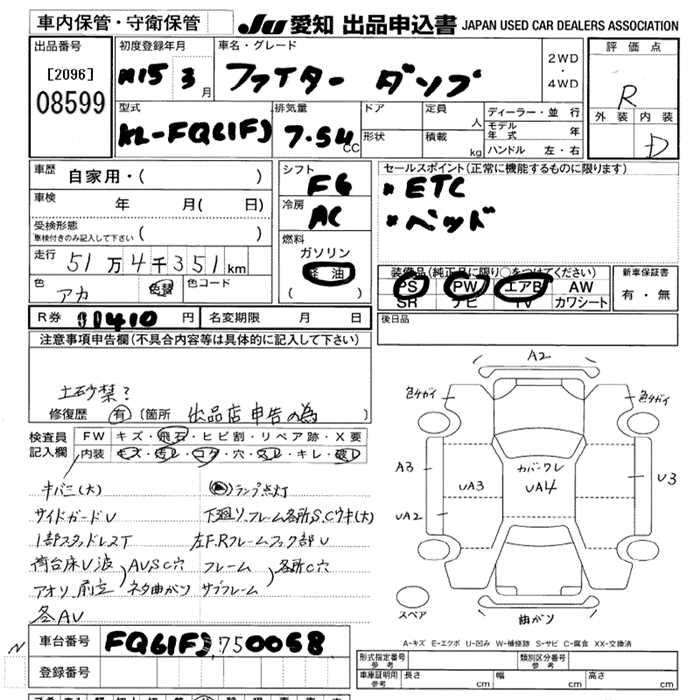 車内保管・守衛保管
JU 愛知 出品申込書 JAPAN USED CAR DEALERS ASSOCIATION
出品番号
[2096]
08599
初度登録年月
H15 3 月
車名・グレード
ファイター ダンプ
2WD
・
4WD
評価点
R
外装 内装
D
型式
KL-FQ61FJ
排気量
7.54 CC
ドア
形状
定員 人
積載 kg
ディーラー・並行
モデル年式 年
ハンドル 左・右
車歴 自家用・( )
車検 年 月( 日)
受検形態
車検付きのみ記入して下さい ( )
走行 51万4千351km
色 アカ 色替 色コード
シフト
F6
冷房
AC
燃料
ガソリン
軽油
( )
セールスポイント(正常に機能するものに限ります)
* ETC
* ベッド
装備品(純正品に限り○をつけてください)
PS PW エアB AW
SR ナビ TV カワシート
新車保証書
有・無
R券 11410 円 名変期限 月 日
後日品
注意事項申告欄(不具合内容等は具体的に記入して下さい)
土砂禁?
修復歴 有 [箇所 出品店申告の為 ]
検査員
記入欄
FW キズ・飛石・ヒビ割・リペア跡・X要
内装 キズ・汚レ・コゲ・穴・スレ・キレ・破レ
キバミ(大)
ランプ点灯
サイドガードU
下廻り、フレーム各所S、Cウキ(大)
1部スタッドレスT
左F.Rフレームフック部U
荷台床U波
アオリ、前立
AVSC穴
ネタ曲がり
フレーム
サブフレーム
各所C穴
各AU
A2
色ケガイ
色ケガイ
A3
UA3
カバーワレ
UA4
U3
UA2
スペア
曲がり
A-キズ E-エクボ U-凹み W-補修跡 S-サビ C-腐食 XX-交換済
N
車台番号 FQ61FJ 750058
登録番号
形式指定番号
参考
類別区分番号
参考
車庫証明用
参考
長さ cm 幅 cm 高さ cm